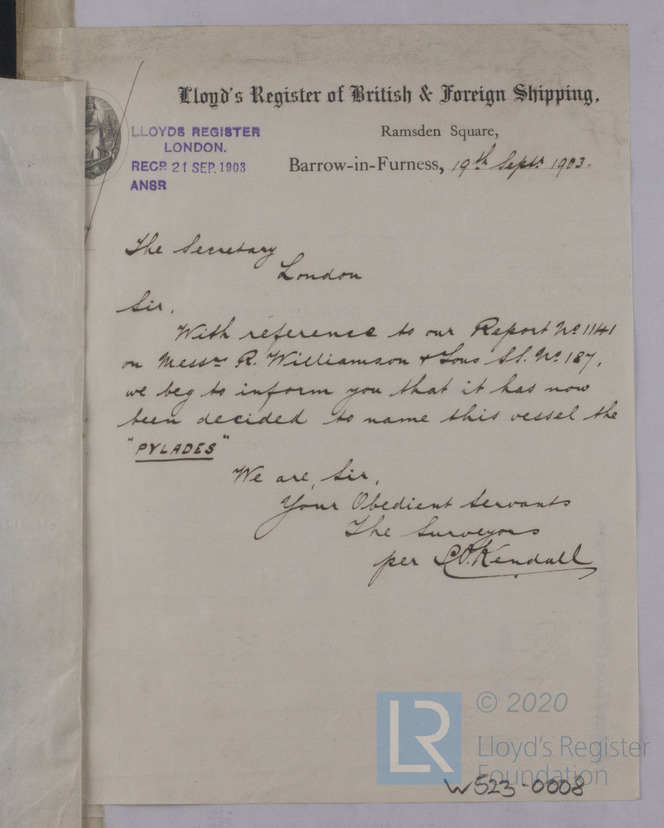 Lloyd's Register of British & Foreign Shipping.
LLOYDS REGISTER
LONDON.
RECP. 21 SEP. 1903
ANSR
Ramsden Square,
Barrow-in-Furness, 19th Septr 1903.
The Secretary
London
Sir,
With reference to our Report No 1141
on Messrs R. Williamson & Sons S.S. No 187,
we beg to inform you that it has now
been decided to name this vessel the
"PYLADES"
We are, Sir,
Your Obedient Servants
The Surveyors
per C.O. Kendall
LR
© 2020
Lloyd's Register
Foundation
W523-0008